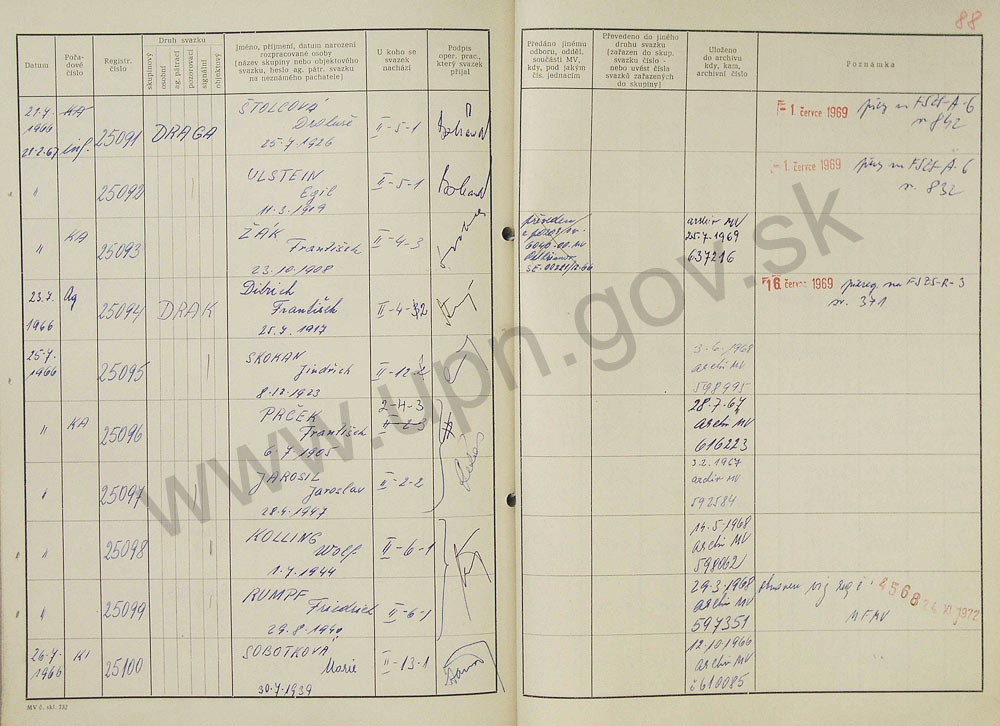 88
Datum
Pořa-
dové
číslo
Registr.
číslo
Druh svazku
skupinový
osobní
ag. pátrací
pozorovací
signální
objektový
Jméno, příjmení, datum narození
rozpracované osoby
[název skupiny nebo objektového
svazku, heslo ag. pátr. svazku
na neznámého pachatele]
U koho se
svazek
nachází
Podpis
oper. prac.,
který svazek
přijal
Předáno jinému
odboru, odděl.
součásti MV,
kdy, pod jakým
čís. jednacím
Převedeno do jiného
druhu svazku
[zařazen do skup.
svazku číslo -
nebo uvést čísla
svazků zařazených
do skupiny]
Uloženo
do archivu
kdy, kam,
archivní číslo
Poznámka
21.7.
1966
KA
25091
DRAGA
ŠTOLCOVÁ
Drahuše
25.7.1926
II-5-1
- 1. července 1969
na FSZS-A-6
842
"
25092
ULSTEIN
Egil
11.3.1909
II-5-1
- 1. července 1969
na FSZS-A-6
832
"
KA
25093
ŽÁK
František
23.10.1908
II-4-3
archiv MV
25.7.1969
637216
23.7.
1966
Ag
25094
DRAK
Dittrich
František
25.7.1917
II-4-2
16. červce 1969
na FSZS-R-3
371
25.7.
1966
25095
SKOKAN
Jindřich
8.12.1923
II-12-2
3.6.1968
archiv MV
598995
"
KA
25096
PAČEK
František
6.7.1905
2-4-3
II-2-3
28.7.67
archiv MV
616223
"
25097
JAROSIL
Jaroslav
28.4.1947
II-2-2
3.2.1967
archiv MV
592584
"
25098
KOLLING
Wolf
1.7.1944
II-6-1
13.5.1968
archiv MV
598062
"
25099
RUMPF
Friedrich
29.8.1940
II-6-1
29.3.1968
archiv MV
597351
4568 24. XI. 1972
MFMV
26.7.
1966
KI
25100
SOBOTKOVÁ
Marie
30.7.1939
II-13-1
12.10.1966
archiv MV
č 610085
MV č. skl. 232
www.upn.gov.sk